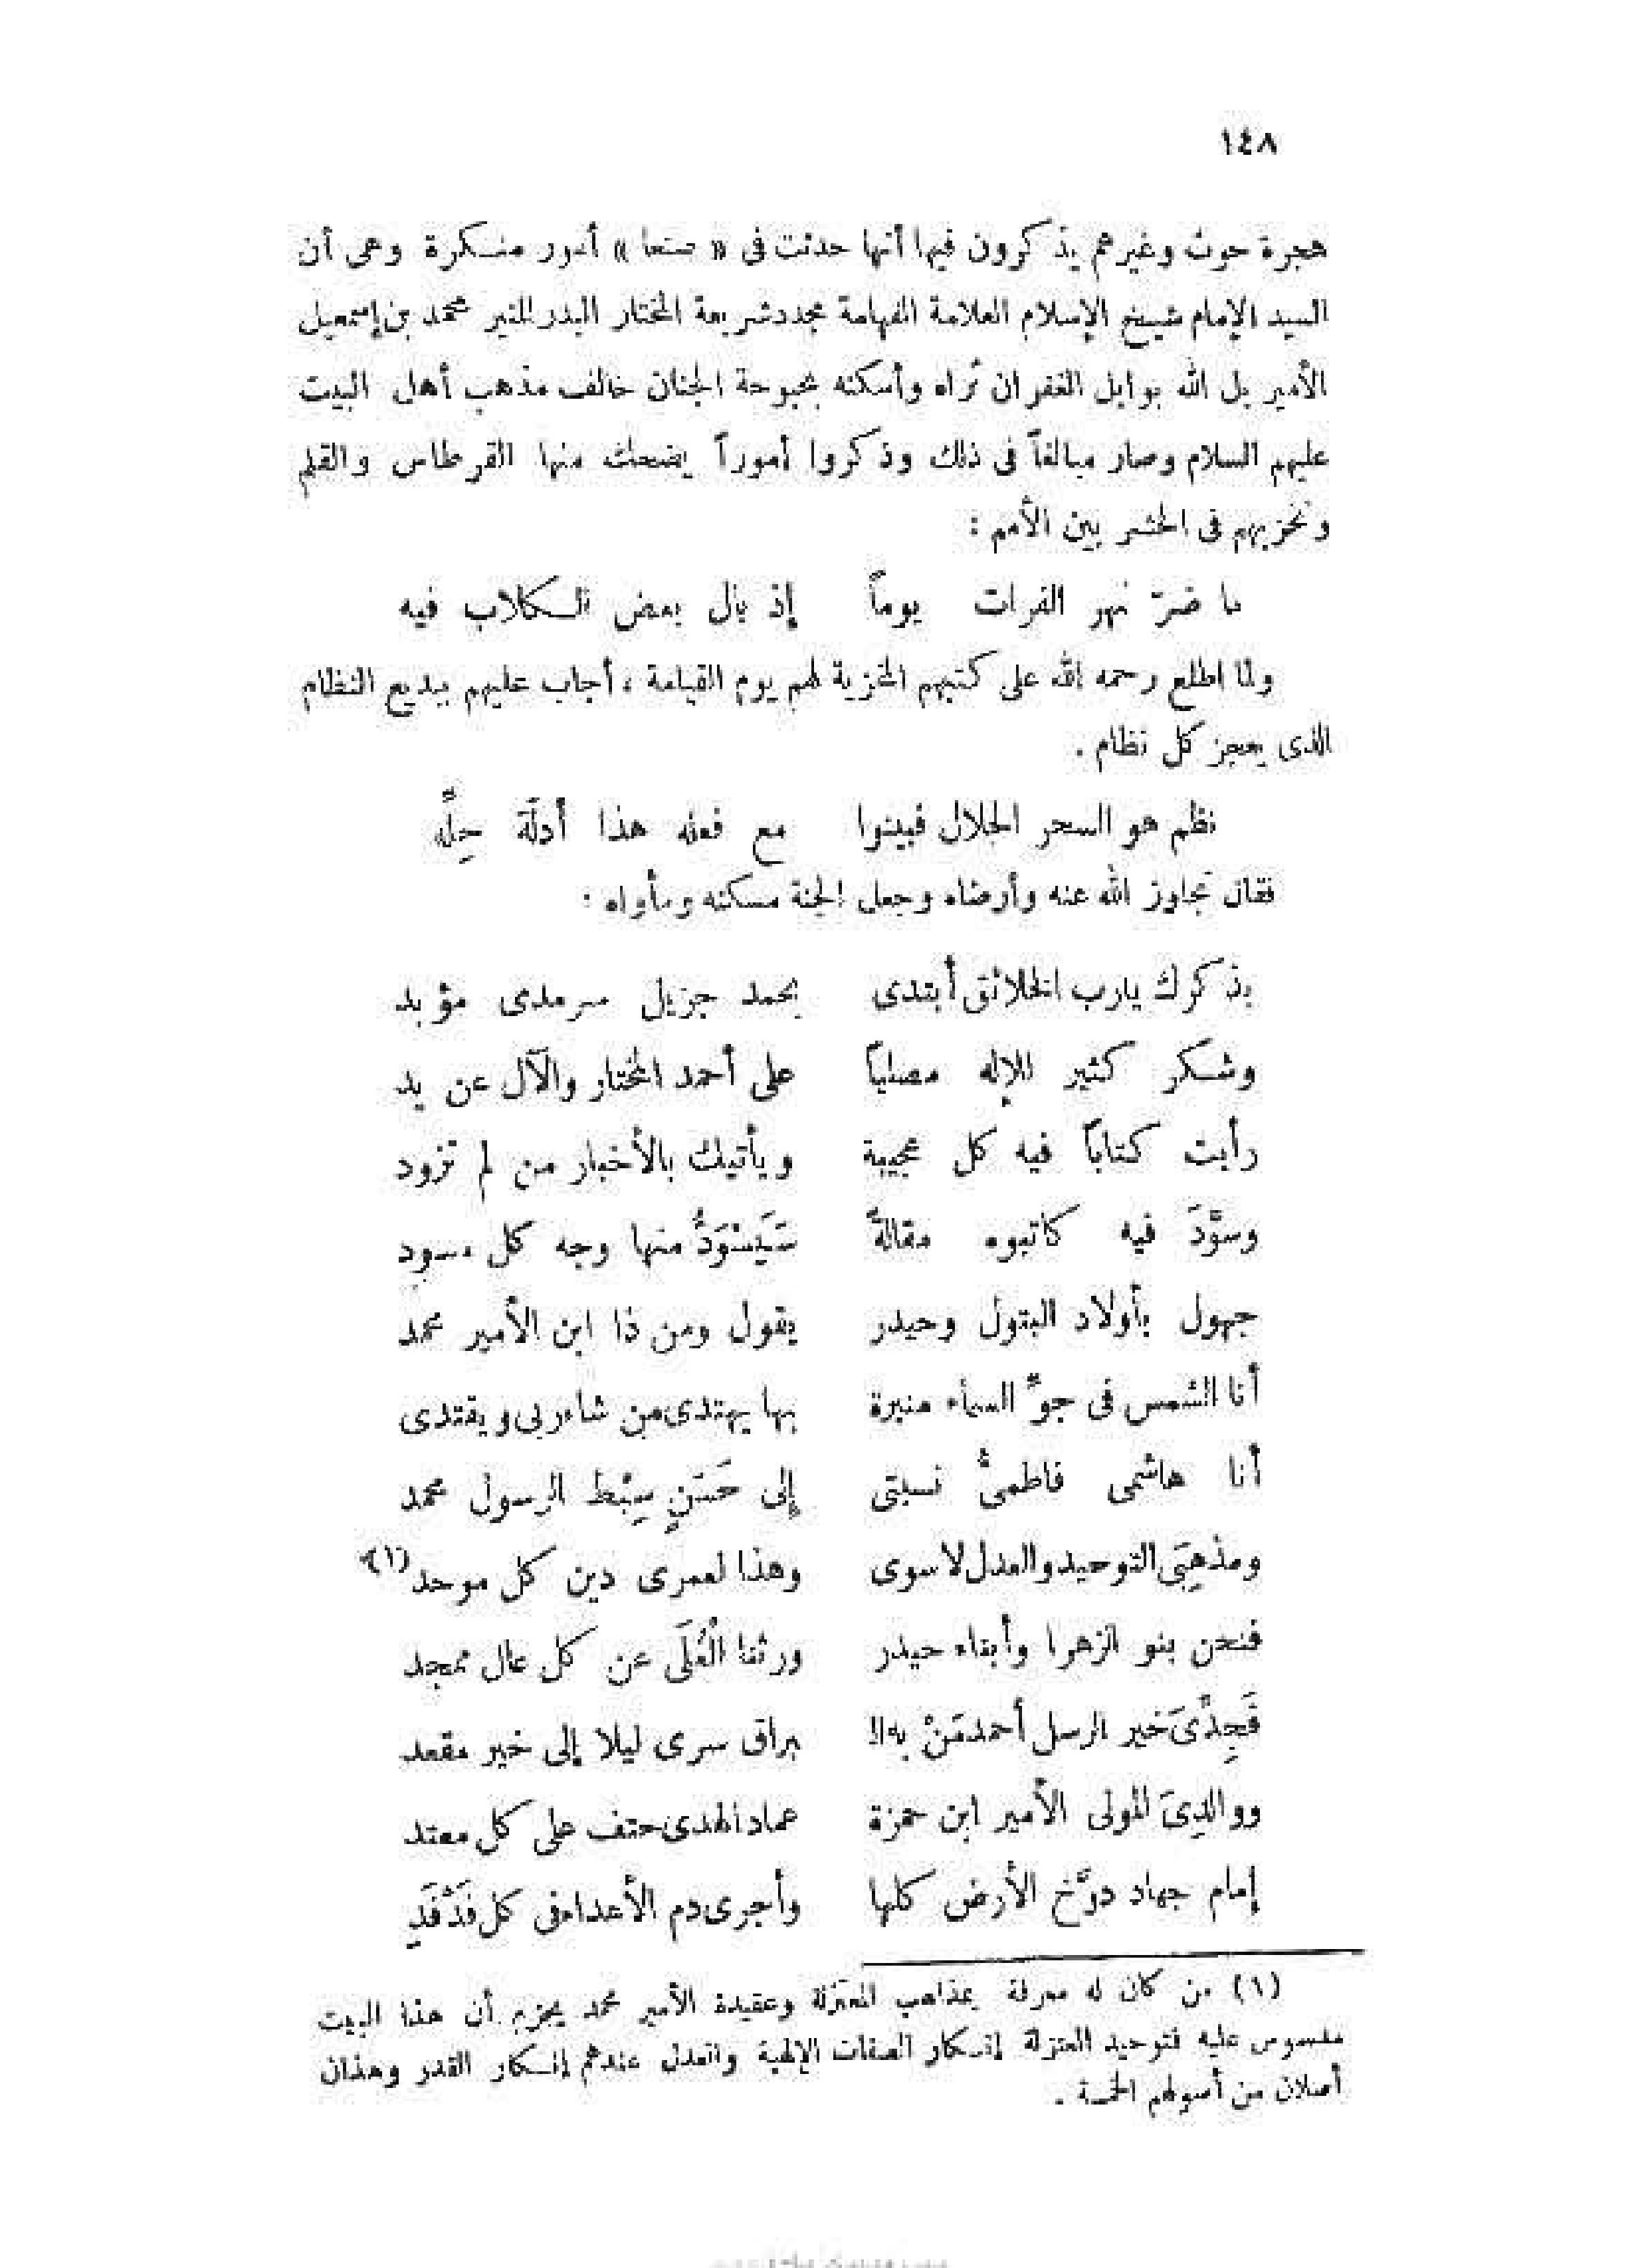 ١٤٨
هجرة حوث وغيرهم يذكرون فيها أنها حدثت فى « صنعا » أمور منكرة وهى أن
السيد الإمام شيخ الإسلام العلامة الفهامة مجدد شريعة المختار البدر المنير محمد بن إسمعيل
الأمير بل الله بوابل الغفران ثراه وأسكنه بحبوحة الجنان خالف مذهب أهل البيت
عليهم السلام وصار مبالغاً فى ذلك وذكروا أموراً يضحك منها القرطاس والقلم
وتخزيهم فى الحشر بين الأمم :
ما ضرّ نهر الفرات يوماً إذ بال بعض الكلاب فيه
ولما اطلع رحمه الله على كتبهم المخزية لهم يوم القيامة ، أجاب عليهم ببديع النظام
الذى يعجز كل نظام .
نظم هو السحر الحلال فبينوا مع فعله هذا أدلّة حِلَّه
فقال تجاوز الله عنه وأرضاه وجعل الجنة مسكنه ومأواه :
بذكرك يارب الخلائق أبتدى بحمد جزيل سرمدى مؤبد
وشكر كثير للإله مصلياً على أحمد المختار والآل عن يد
رأيت كتاباً فيه كل عجيبة ويأتيك بالأخبار من لم تزود
وسوَّدَ فيه كاتبوه مقالةً سَيَسْوَدُّ منها وجه كل مسود
جهول بأولاد البتول وحيدر يقول ومن ذا ابن الأمير محمد
أنا الشمس فى جوّ السماء منيرة بها يهتدى من شاء ربى ويقتدى
أنا هاشمى فاطمىٌّ نسبتى إلى حَسَنٍ سِبْط الرسول محمد
ومذهبِىَ التوحيد والعدل لا سوى وهذا لعمرى دين كل موحد (١)
فنحن بنو الزهرا وأبناء حيدر ورثنا الْعُلَى عن كل عال ممجد
فَجِدِّىَ خير الرسل أحمد مَنْ به ال براق سرى ليلا إلى خير مقعد
ووالدِىَ المولى الأمير ابن حمزة عماد الهدى حتف على كل معتد
إمام جهاد دوَّخ الأرض كلها وأجرى دم الأعداء فى كل فَدْفَدِ
(١) من كان له معرفة بمذاهب المعتزلة وعقيدة الأمير محمد يجزم أن هذا البيت
مدسوس عليه فتوحيد المعتزلة إنكار الصفات الإلهية والعدل عندهم إنكار القدر وهذان
أصلان من أصولهم الخمسة .